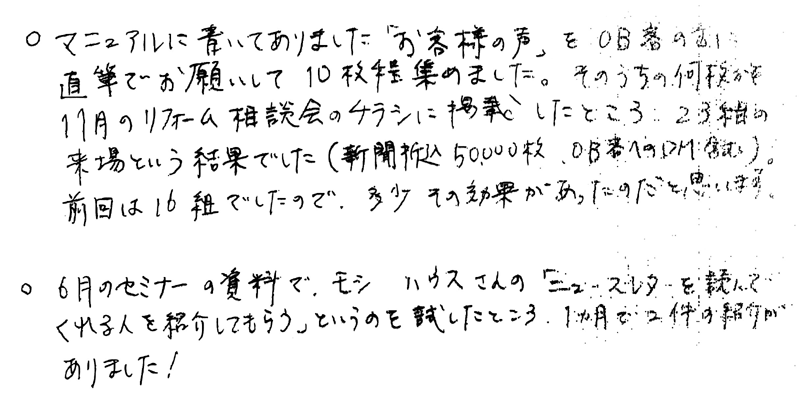 ○ マニュアルに書いてありました「お客様の声」を OB客の方に
直筆でお願いして 10枚程集めました。そのうちの何枚かを
11月のリフォーム相談会のチラシに掲載したところ、23組の
来場という結果でした(新聞折込50,000枚、OB客へのDM含む)。
前回は16組でしたので、多少その効果があったのだと思います。
○ 6月のセミナーの資料で、モシ ハウスさんの「ニュースレターを読んで
くれる人を紹介してもらう」というのを試したところ、1カ月で2件の紹介が
ありました!